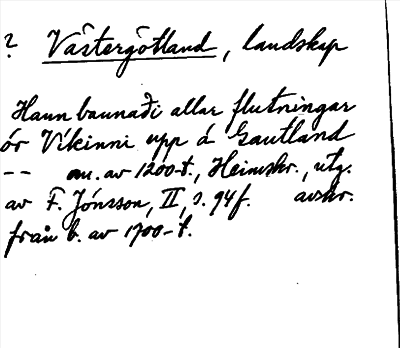 ? Västergötland, landskap
Hann bannaði allar flutningar
ór Víkinni upp á Gautland
-- au. av 1200-t., Heimskr., utg.
av F. Jónsson, II, s. 94f. avskr.
från b. av 1700-t.